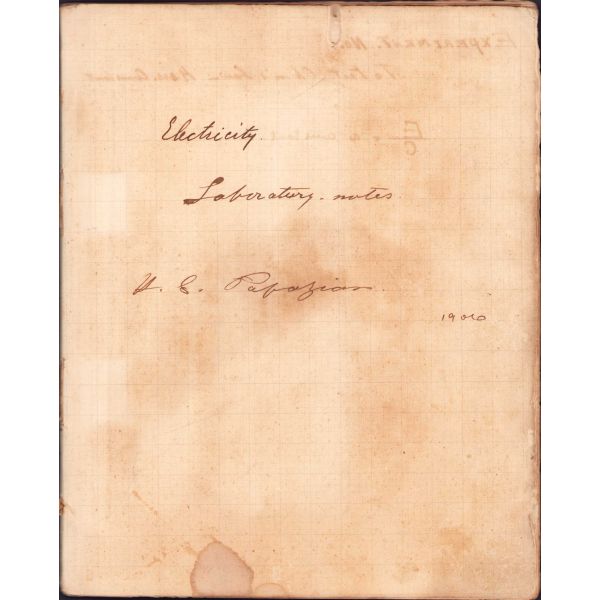 Electricity.
Laboratory notes.
H. C. Papazian.
1906